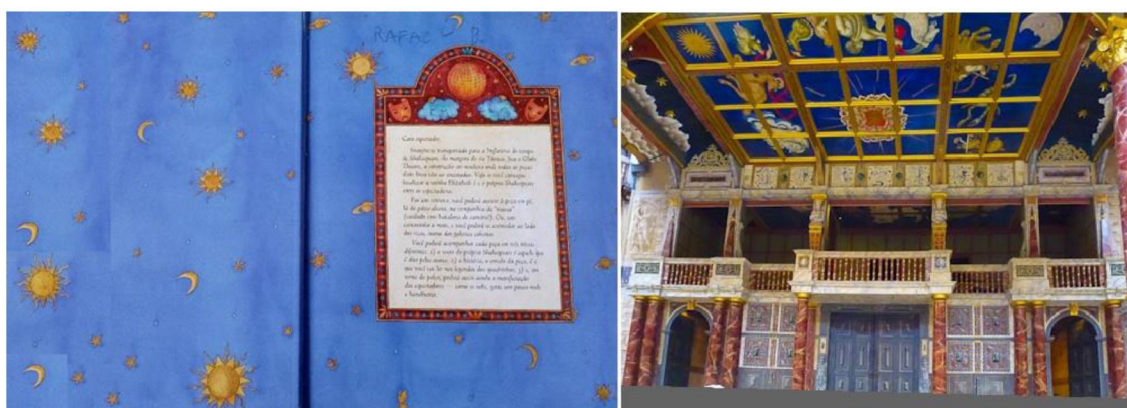 RAFAE R
Caro espectador,
Imagine-se transportado para a Inglaterra do tempo
de Shakespeare. Às margens do rio Tâmisa, fica o Globe
Theatre, a construção em madeira onde todas as peças
deste livro vão ser encenadas. Veja se você consegue
localizar a rainha Elizabeth I e o próprio Shakespeare
entre os espectadores.
Por um centavo, você poderá assistir à peça em pé,
lá do pátio aberto, na companhia da "massa"
(cuidado com batedores de carteira!). Ou,
centavinho a mais, você poderá se acomodar ao lado
dos ricos, numa das galerias cobertas.
Você poderá acompanhar cada peça em três níveis
diferentes: 1) o do próprio Shakespeare é aquele que
é dito pelos atores; 2) a história, o enredo da peça, é o
que você vai ler nas legendas dos quadrinhos; 3) e, em
torno do palco, poderá ouvir ainda a manifestação
dos espectadores — como se sabe, gente um pouco rude
e barulhenta.